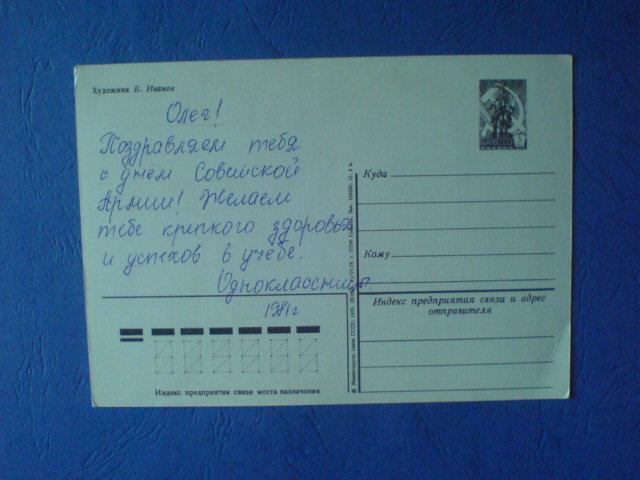 Художник Б. Иванов
Олег!
Поздравляем тебя
с днём Советской
Армии! Желаем
тебе крепкого здоровья
и успехов в учёбе.
Одноклассницы.
1981г
Куда
Кому
Индекс предприятия связи и адрес
отправителя
Индекс предприятия связи места назначения
© Министерство связи СССР. 1978